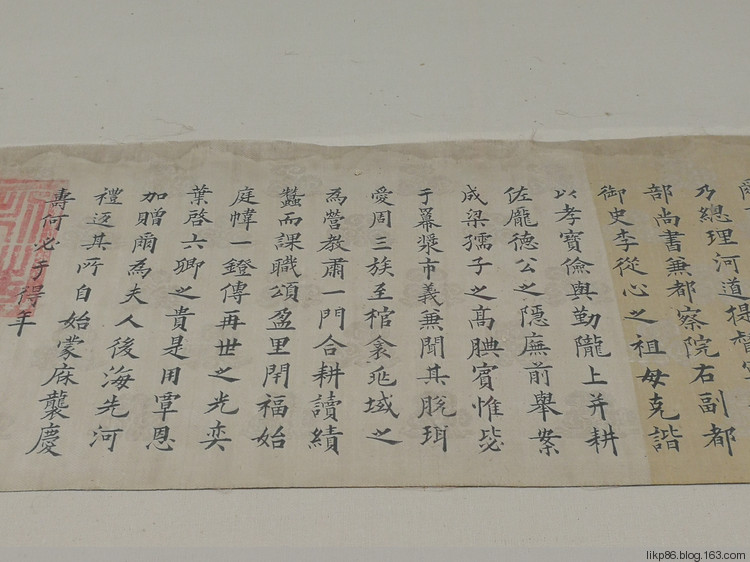 乃總理河道提督
部尚書兼都察院右副都
御史李從心之祖母克諧
以孝寶儉與勤隴上并耕
佐龐德公之隱廡前舉案
成梁孺子之高腆賓惟毖
于冪漿市義兼聞其脫珥
愛周三族至棺衾兆域之
為營教肅一門合耕讀績
蠶而課職頌盈里閈福始
庭幃一鐙傳再世之光奕
葉啓六卿之貴是用覃恩
加贈爾為夫人後海先河
禮返其所自始蒙庥襲慶
壽何必于得年
likp86.blog.163.com